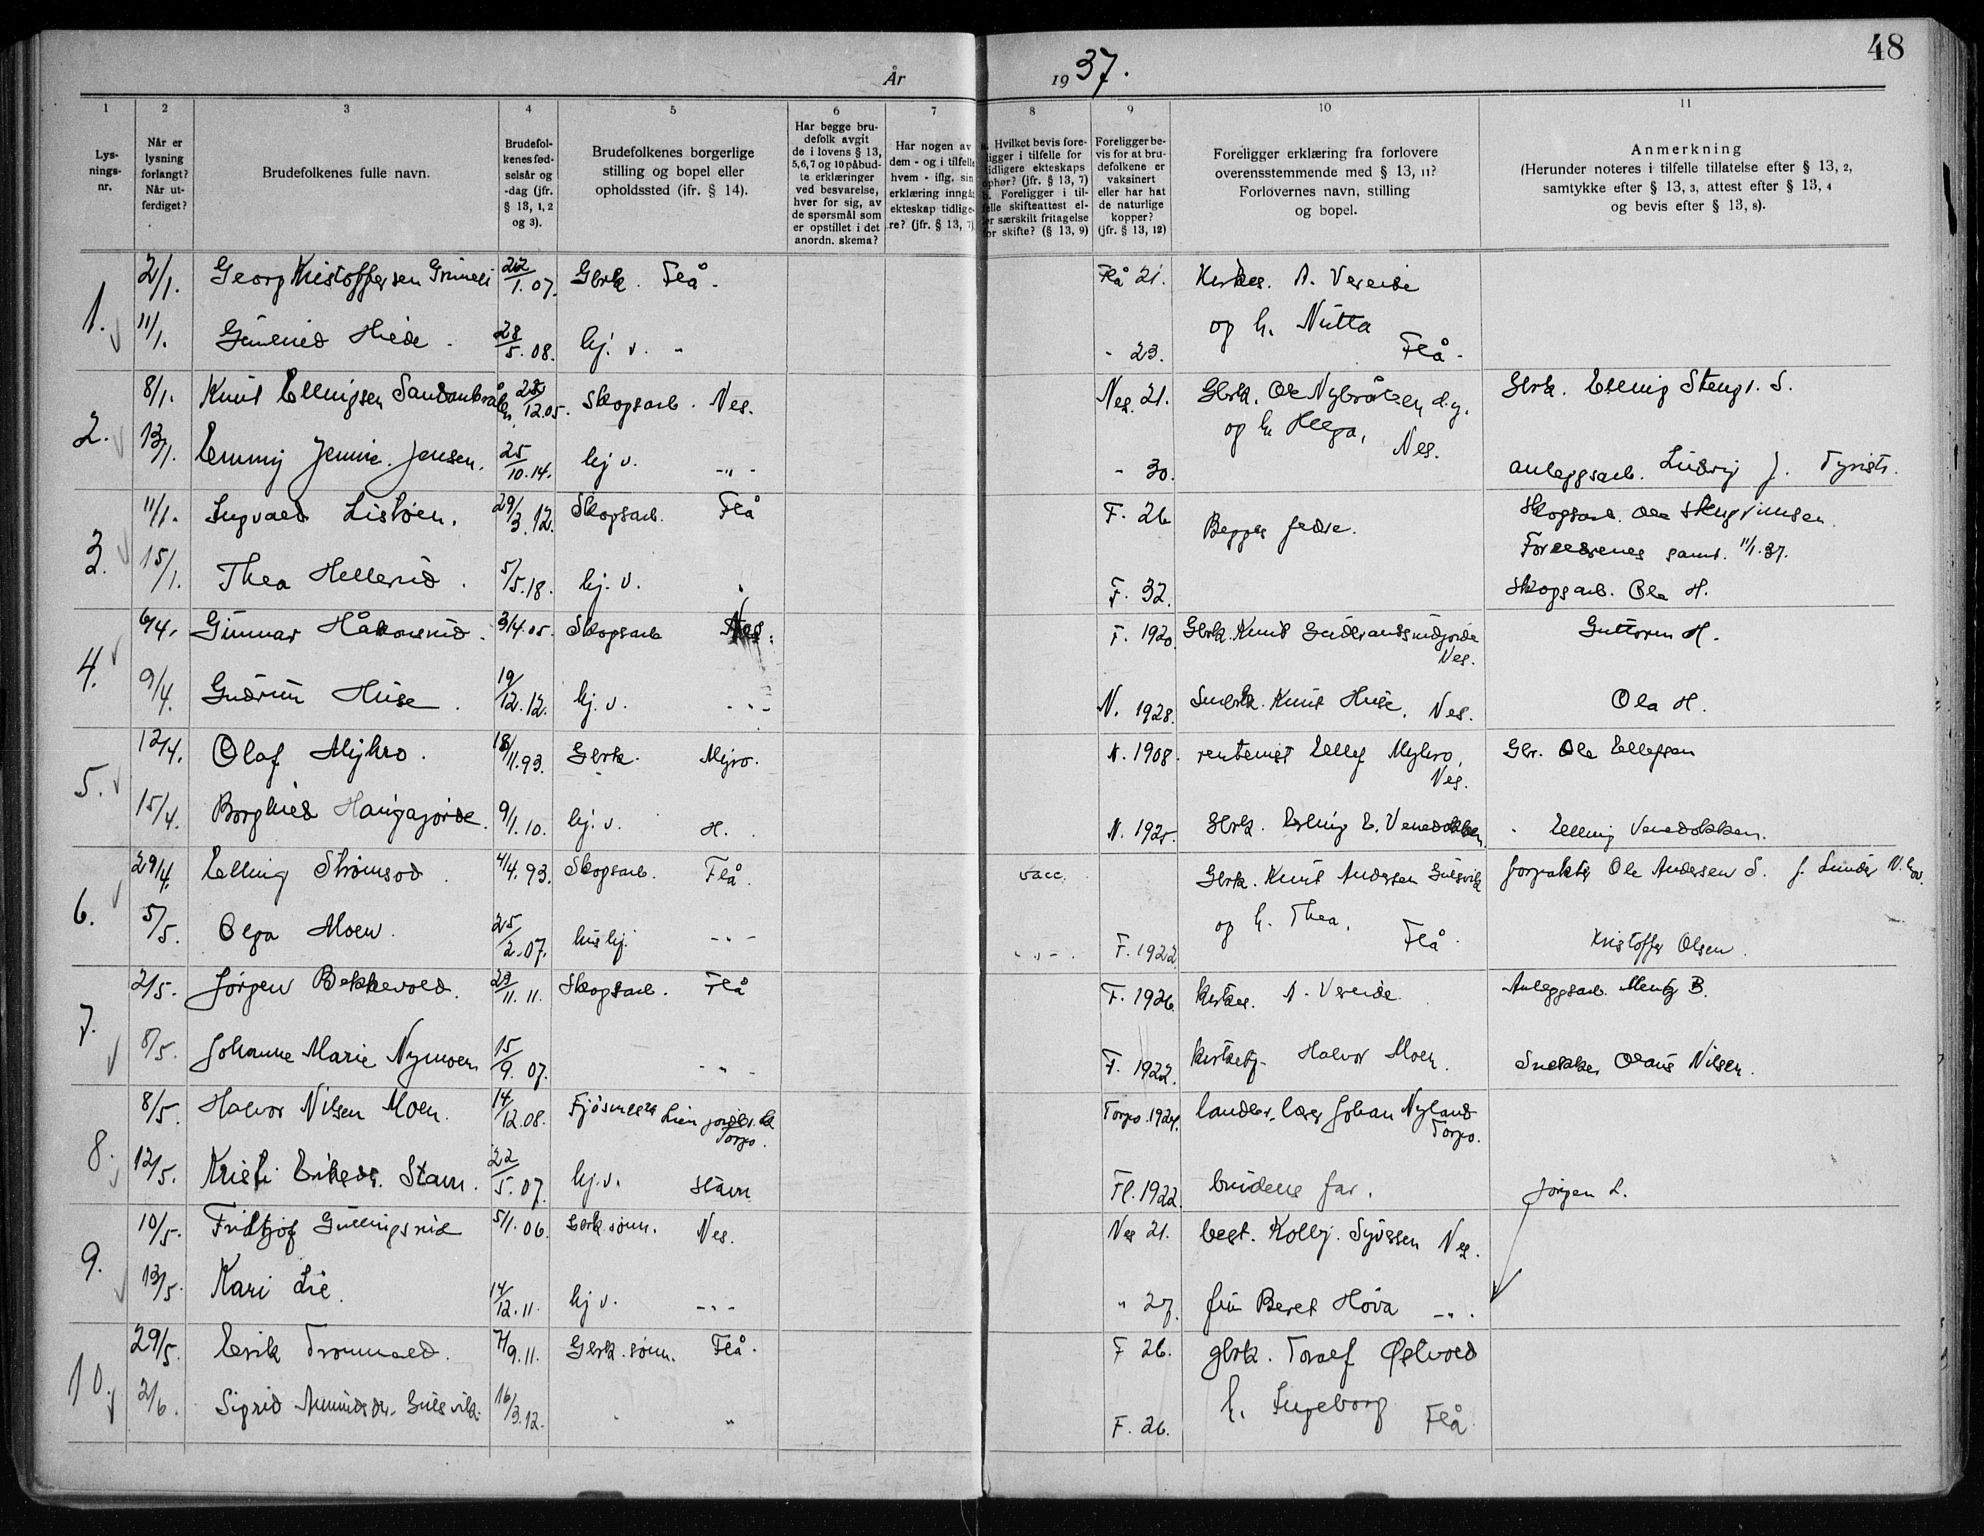 48
År 1937.
1 2 3 4 5 6 7 8 9 10 11
Lys-
nings-
nr.
Når er
lysning
forlangt?
Når ut-
ferdiget?
Brudefolkenes fulle navn.
Brudefol-
kenes fød-
selsår og
-dag (jfr.
§ 13, 1, 2
og 3).
Brudefolkenes borgerlige
stilling og bopel eller
opholdssted (jfr. § 14).
Har begge bru-
defolk avgit
de i lovens § 13,
5,6,7 og 10 påbud-
te erklæringer
ved besvarelse,
hver for sig, av
de spørsmål som
er opstillet i det
anordn. skema?
Har nogen av
dem - og i tilfelle
hvem - iflg. sin
erklæring inngåt
ekteskap tidlige-
re? (jfr. § 13, 7)
a. Hvilket bevis fore-
ligger i tilfelle for
tidligere ekteskaps
ophør? (jfr. § 13, 7)
b. Foreligger i til-
felle skifteattest el-
ler særskilt fritagelse
for skifte? (§ 13, 9)
Foreligger be-
vis for at bru-
defolkene er
vaksinert
eller har hat
de naturlige
kopper?
(jfr. § 13, 12)
Foreligger erklæring fra forlovere
overensstemmende med § 13, 11?
Forlovernes navn, stilling
og bopel.
Anmerkning
(Herunder noteres i tilfelle tillatelse efter § 13, 2,
samtykke efter § 13, 3, attest efter § 13, 4
og bevis efter § 13, 8).
1. 2/1. Georg Kristoffersen 22/1.07. Gbrk. Flå. Flå 21. Kirkes. A. Vereide
og h. Nutta
11/1. Gunhild Hilde. 28/5.08. hj. v. " - 23. Flå.
2. 8/1. Knut Ellingsen 12.05. Skogsarb. Nes. Nes. 21. Gbrk. Ole Nybråten d.y. Gbrk. Elling Stengr. S.
og h. Helga, Nes.
13/1. Emmy Jennie Jensen. 25/10.14. hj v. -"- - 30. anleggsarb. Ludvig J.
3. 11/1. Ingvald Listøen. 29/3.12. Skogsarb. Flå F. 26 Begges fedre. Skogsarb. Ole Stengrimsen.
Foreldrenes samt. 11/1.37.
15/1. Thea Hellerud. 5/5.18. hj. v. F. 32. Skogsarb. Ola H.
4. 6/4. Gunnar Håkonsrud. 3/4.05. Skogsarb Nes. F. 1920. Gbrk. Knut Guttorm H.
Nes.
9/4. Gudrun Huse. 19/12.12. hj. v. -"- N. 1928. Knut Huse, Nes. Ola H.
5. 12/4. Olaf Myhro. 18/11.93. Gbrk. Myro. N. 1908. rentenist Ellef Myhro, Gbr. Ole Ellefsen
Nes.
15/4. Borghild Haugajorde. 9/1.10. hj. v. H. N. 1925. Gbrk. Erling E. Venedokken. Elling Venedokken.
6. 29/4. Elling Strømsod 4/4.93. Skogsarb. Flå. vacc. Gbrk. Knut Andersen Gulsvik forpakter Ole Andersen S.
og h. Thea, Flå.
5/5. Olga Moen. 25/2.07. hushj. -"- -"- F. 1922. Kristoffer Olsen.
7. 2/5. Jørgen Bekkevold. 23/11.11. Skogsarb. Flå F. 1926. Kirkes. A. Vereide Anleggsarb. Mentz B.
8/5. Johanne Marie Nymoen 15/9.07. -"- F. 1922. Kirketj. Halvor Moen. Snekker Olaus Nilsen.
8. 8/5. Halvor Nilsen Moen. 14/12.08. Torpo. Torpo. 1924. Johan Nyland
Torpo.
12/5. Kristi Stavn. 22/5.07. hj. v. Stavn Fl. 1922. brudens far. Jørgen L.
9. 10/5. Fridtjof Gullingsrud 5/1.06. Gbrk.sønn. Nes. Nes 21. best. Kolbj. Syversen Nes.
13/5. Kari Lie. 14/12.11. hj v. -"- " 27. fru Beret Hova -"-.
10. 29/5. Erik Trommald. 7/9.11. Gbrk.sønn. Flå. F 26. gbrk. Toralf Østvold
h. Ingeborg Flå
2/6. Sigrid Amundsdr. Gulsvik. 16/3.12. " F. 26.